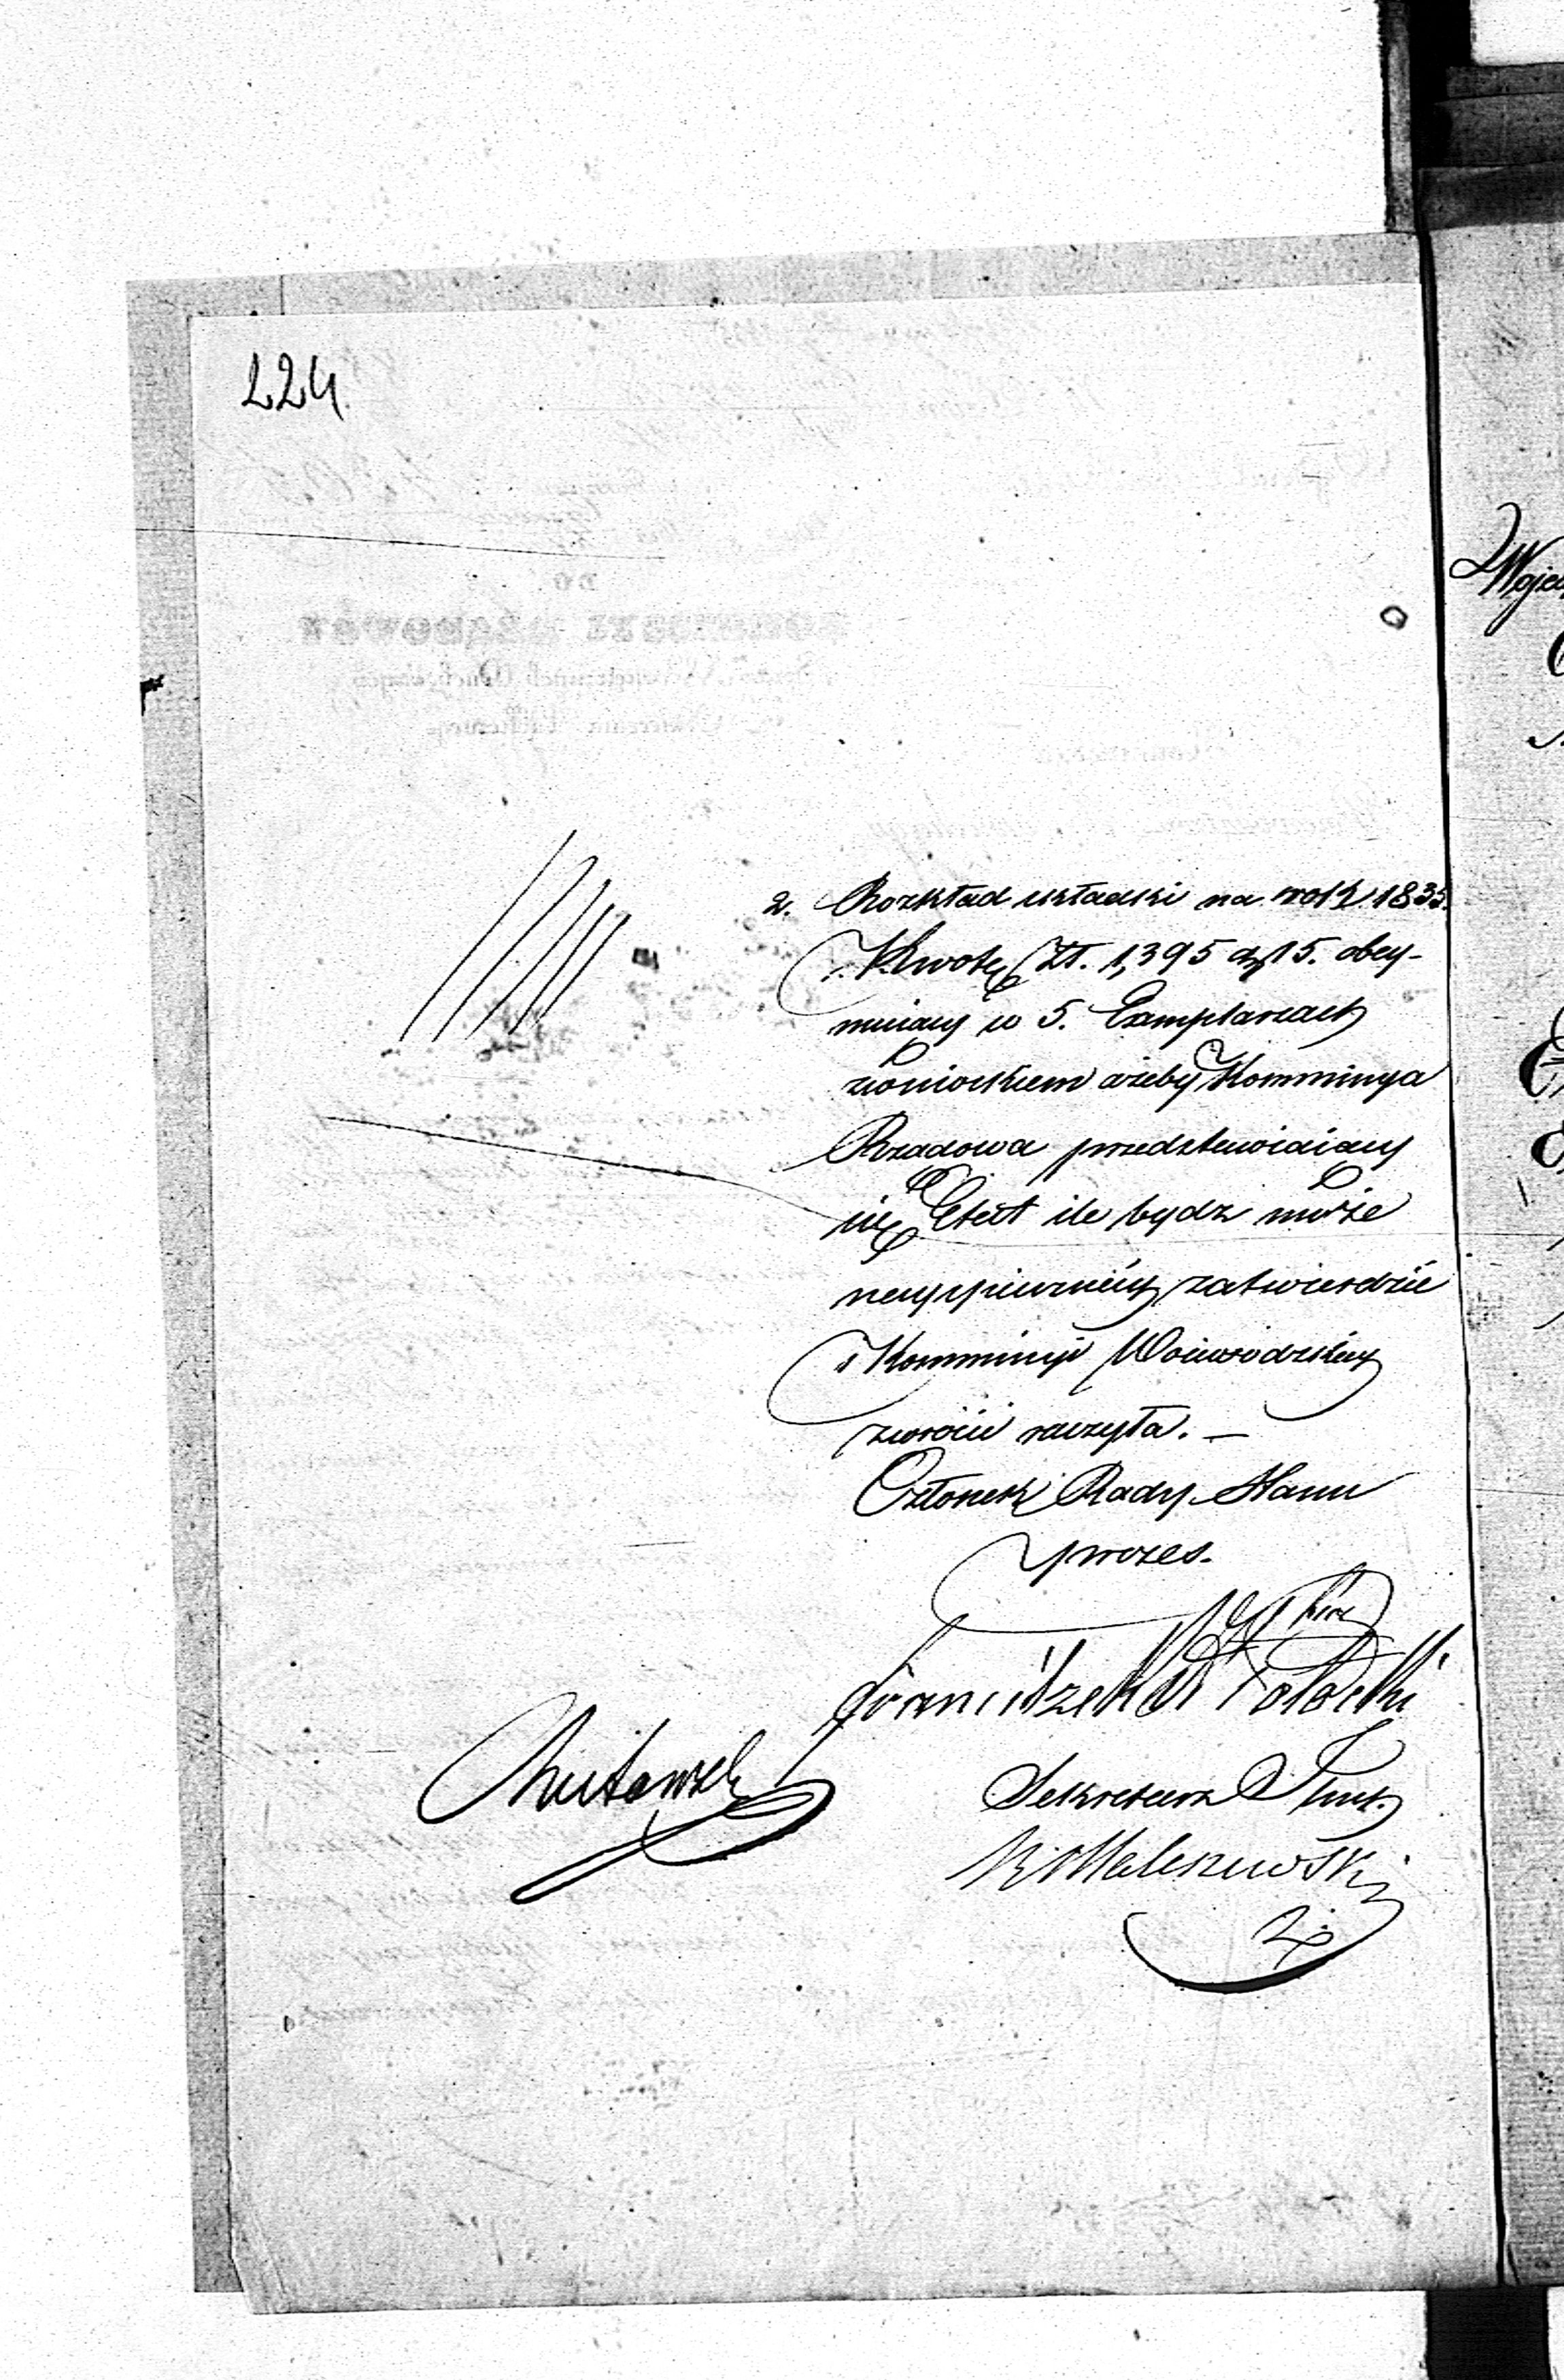 224
2. Rozkład składki na rok 1835.
Kwotę Zł. 1,395 gr 15. obey-
muiący w 5. Exemplarzach
z wnioskiem ażeby Kommissya
Rządowa przedstawiaiący
się Etat ile bydz może
nayspieszniéy zatwierdzić
i Kommissyi Woiewódzkiéy
zwrócić raczyła. —
Członek Rady Stanu
Prezes.
Franciszek Potocki
Sekretarz Jlny
Maleszewski
Woje